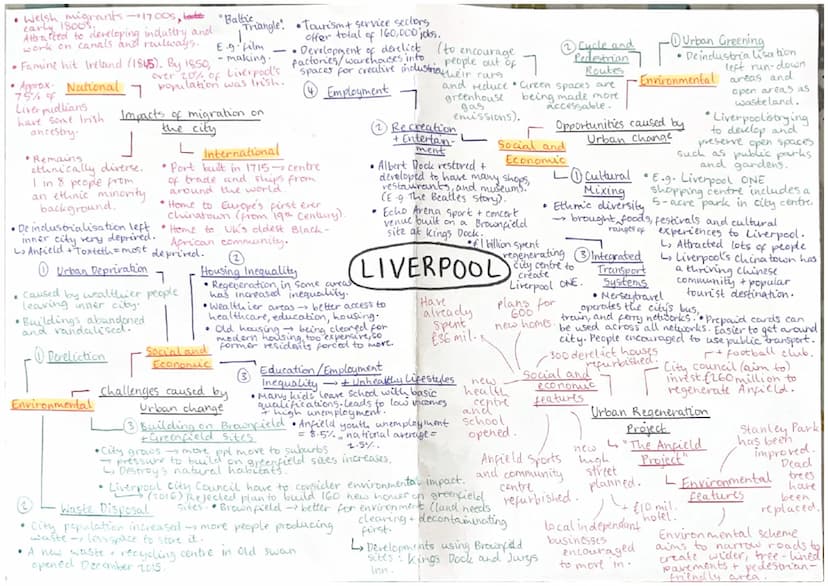 • Welsh migrants → 1700s, late
early 1800s.
Attracted to developing industry and
work on canals and railways.
• Famine hit Ireland (1845). By 1850,
over 20% of Liverpool's
population was Irish.
• Approx.
75% of
Liverpudlians
have some Irish
ancestry.
National
Impacts of migration on
the city
International
• Remains
ethnically diverse.
1 in 8 people from
an ethnic minority
background.
• Port built in 1715 → centre
of trade and ships from
around the world
• Home to Europe's first ever
chinatown (from 19th Century).
• Home to UK's oldest Black-
African community.
"Baltic
Triangle".
E.g. film
-making.
• Tourism + service sectors
offer total of 160,000 jobs.
• Development of derelict
factories/warehouses into
spaces for creative industries
④ Employment
② Recreation
+ Entertain-
ment
• Albert Dock restored +
developed to have many shops,
restaurants, and museums.
(E.g The Beatles story).
• Echo Arena sport + concert
venue built on a Brownfield
site at Kings Dock.
(to encourage
people out of
their cars
and reduce
greenhouse
gas
emissions).
② Cycle and
Pedestrian
Routes
• Green spaces are
being made more
accessible.
① Urban Greening
• Deindustrialisation
left run-down
areas and
open areas as
wasteland.
Environmental
• Liverpool trying
to develop and
preserve open spaces
such as public parks
and gardens.
• E.g. Liverpool ONE
shopping centre includes a
5-acre park in city centre.
Opportunities caused by
Urban Change
Social and
Economic
① Cultural
Mixing
• Ethnic diversity
→ brought foods, festivals and cultural
ranges of
experiences to Liverpool.
↳ Attracted lots of people
↳ Liverpool's chinatown has
a thriving chinese
community + popular
tourist destination.
③ Integrated
Transport
Systems
• Merseytravel
operates the city's bus,
train, and ferry networks.
• Prepaid cards can
be used across all networks. Easier to get around
city. People encouraged to use public transport.
• £1 billion spent
regenerating
city centre to
create
Liverpool ONE.
LIVERPOOL
• Deindustrialisation left
inner city very deprived.
↳ Anfield + Toxteth = most deprived.
① Urban Deprivation
• Caused by wealthier people
leaving inner city.
• Buildings abandoned
and vandalised.
②
Housing Inequality
• Regeneration in some areas
has increased inequality.
• Wealthier areas → better access to
healthcare, education, housing.
• Old housing → being cleared for
modern housing, too expensive, so
former residents forced to move.
① Dereliction
Social and
Economic
Environmental
Challenges caused by
Urban change
③ Education/Employment
Inequality → + Unhealthy Lifestyles
• Many kids leave school with basic
qualifications-leads to low incomes
+ high unemployment.
• Anfield youth unemployment
= 8.5%, national average =
2.5%.
③ Building on Brownfield
+ Greenfield Sites
• City grows → more ppl move to suburbs
→ pressure to build on greenfield sites increases.
↳ Destroys natural habitats.
• Liverpool City Council have to consider environmental impact.
→ (2016) Rejected plan to build 160 new houses on greenfield
sites. • Brownfield → better for environment (land needs
clearing + decontaminating
first.
↳ Developments using Brownfield
sites: Kings Dock and Jurys
Inn.
②
Waste Disposal
• City population increased → more people producing
waste → less space to store it.
• A new waste + recycling centre in Old Swan
opened December 2015.
Have
already
spent
£36 mil.
plans for
600
new homes.
300 derelict houses
refurbished.
Social and
economic
features
new
health
centre
and
school
opened.
Anfield Sports
and community
centre
refurbished.
new
high
street
planned.
+ £10 mil.
hotel.
local independant
businesses
encouraged
to move in.
+ football club.
City council (aim to)
invest £260 million to
regenerate Anfield.
Urban Regeneration
Project
↳ "The Anfield
Project"
Environmental
features
Stanley Park
has been
improved.
Dead
trees
have
been
replaced.
Environmental scheme
aims to narrow roads to
create wider, tree-lined
pavements + pedestrian-
friendly area.